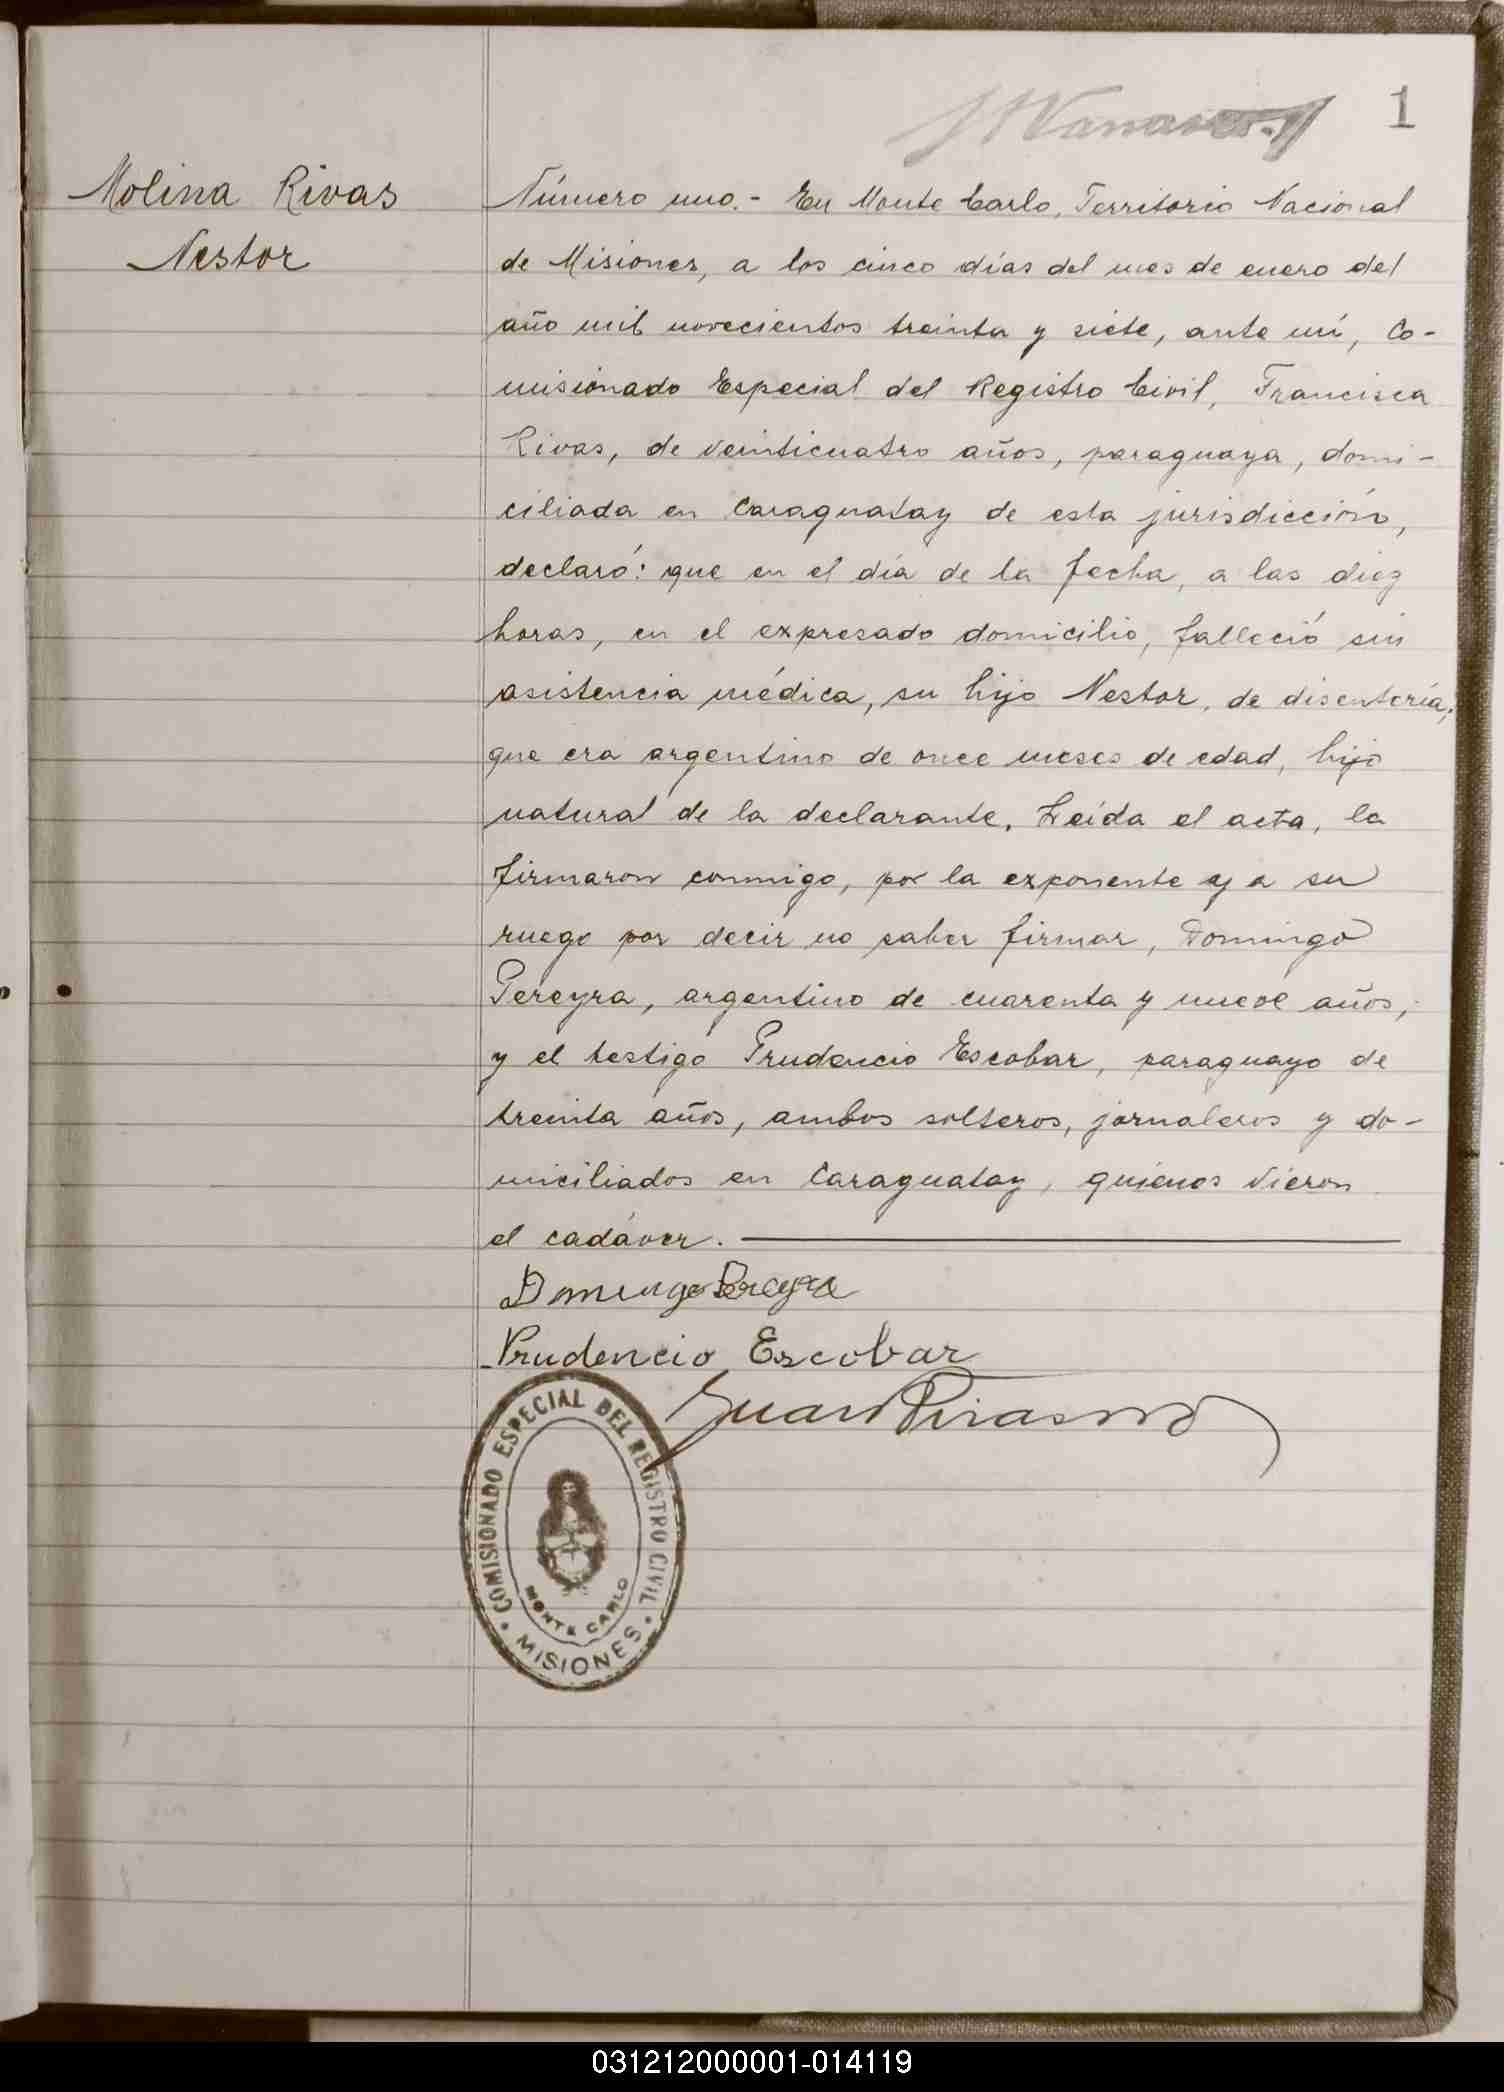 1
Molina Rivas
Nestor
Número uno.- En Monte Carlo, Territorio Nacional
de Misiones, a los cinco días del mes de enero del
año mil novecientos treinta y siete, ante mí, Co-
misionado Especial del Registro Civil, Francisca
Rivas, de veinticuatro años, paraguaya, domi-
ciliada en Caraguatay de esta jurisdicción,
declaró: que en el día de la fecha, a las diez
horas, en el expresado domicilio, falleció sin
asistencia médica, su hijo Nestor, de disentería,
que era argentino de once meses de edad, hijo
natural de la declarante. Leída el acta, la
firmaron conmigo, por la exponente y a su
ruego por decir no saber firmar, Domingo
Pereyra, argentino de cuarenta y nueve años,
y el testigo Prudencio Escobar, paraguayo de
treinta años, ambos solteros, jornaleros y do-
miciliados en Caraguatay, quienes vieron
el cadáver.
Domingo Pereyra
Prudencio Escobar
COMISIONADO ESPECIAL DEL REGISTRO CIVIL
MONTE CARLO
MISIONES
031212000001-014119